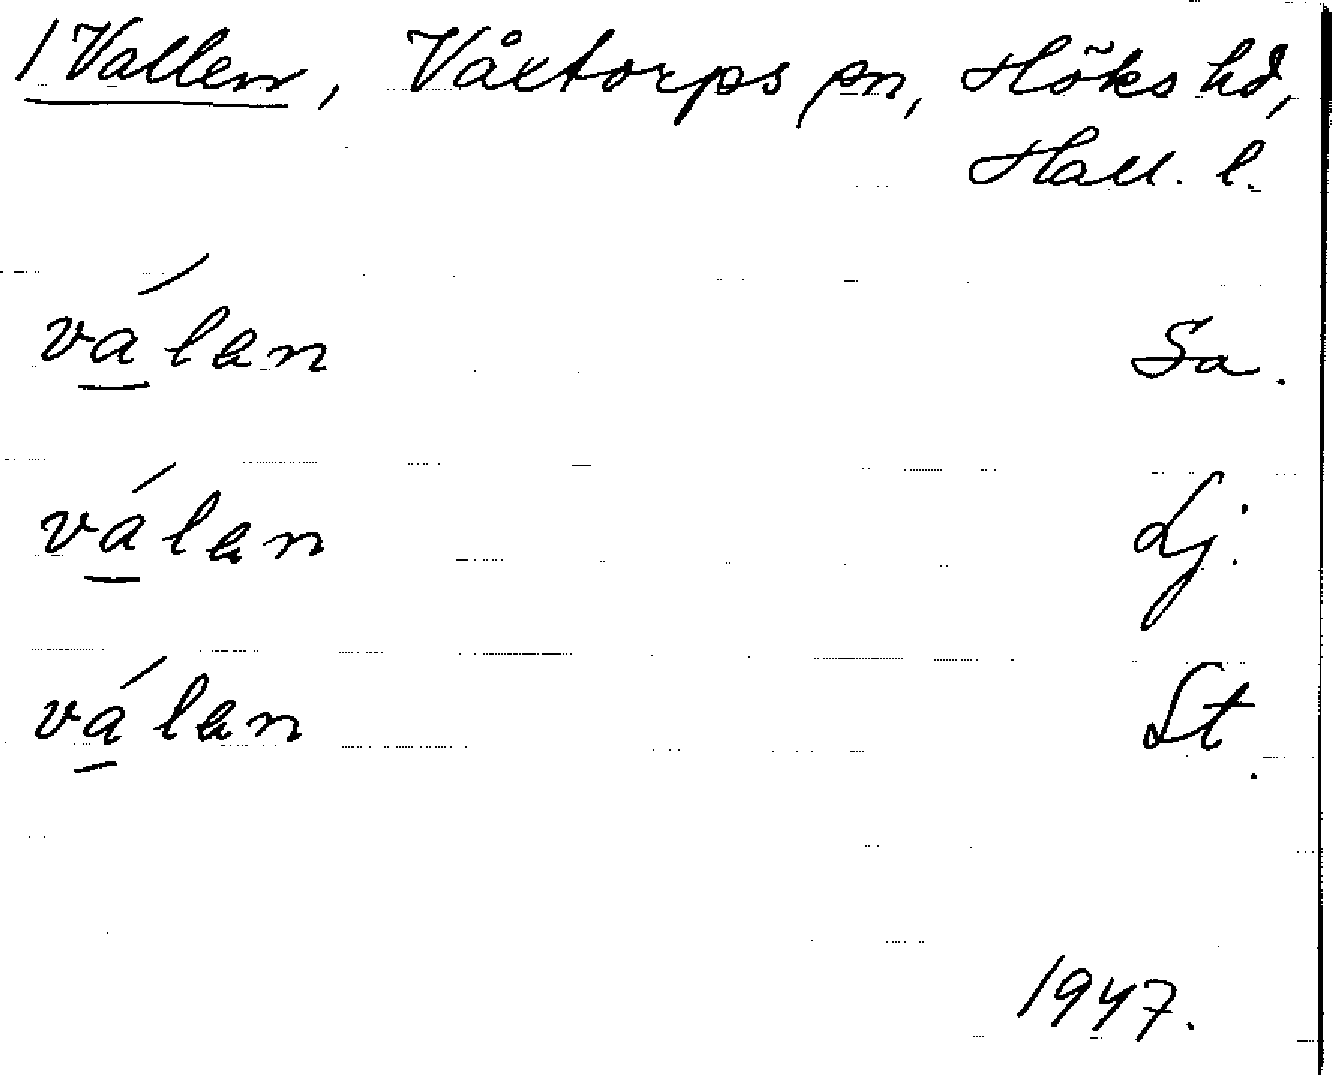 1 Vallen, Våxtorps sn, Höks hd,
Hall. l.
válen Sa.
válen Lj.
válen St.
1947.